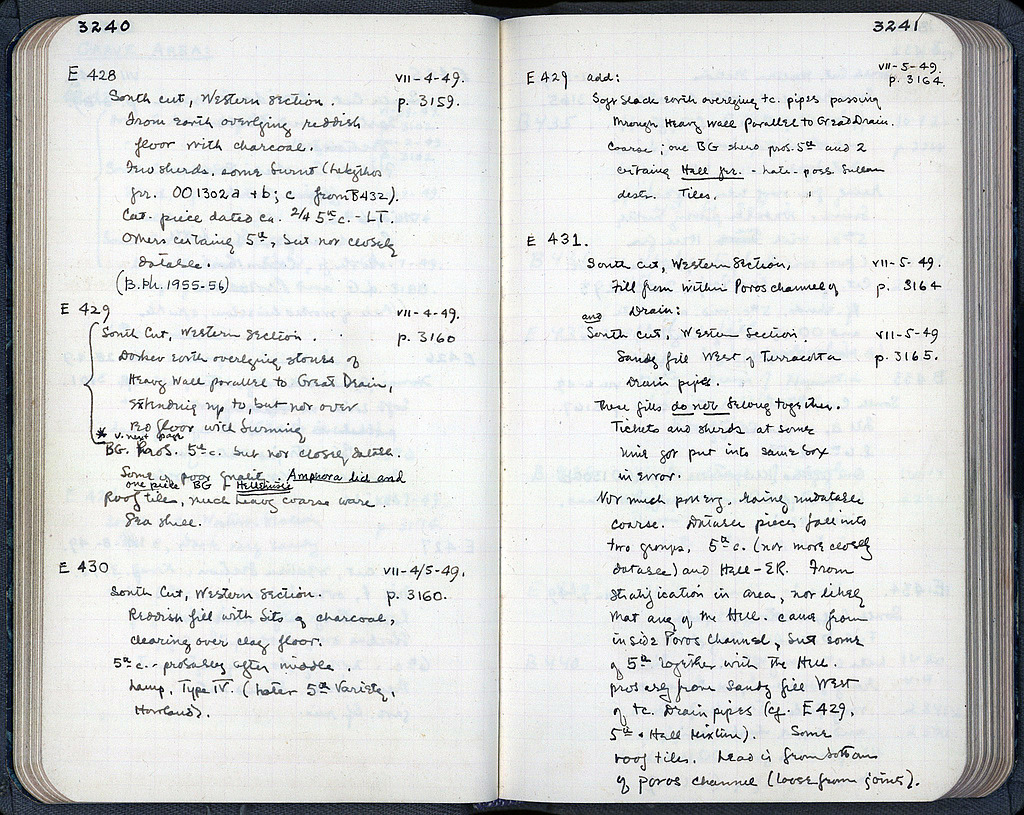 3240
E 428 VII-4-49.
South cut, Western Section. p. 3159.
From earth overlying reddish
floor with charcoal.
Few sherds, some burnt (Lekythos
fr. 001302a + b; c from B432).
Cat. piece dated ca. 2/4 5th c. - LT.
Others certainly 5th, but not closely
datable.
(B.Ph. 1955-56)
E 429 VII-4-49.
South Cut, Western Section. p. 3160
Darker earth overlying stones of
Heavy Wall parallel to Great Drain,
extending up to, but not over
red floor with burning
* v. next page
BG. Pros. 5th c. but not closely datable.
Some is poor quality. Amphora lid and
one piece BG + Hellenistic
Roof tile, much heavy coarse ware.
Sea shell.
E 430 VII-4/5-49.
South Cut, Western Section. p. 3160.
Reddish fill with bits of charcoal,
clearing over clay floor.
5th c. - probably after middle.
Lamp, Type IV. (later 5th variety,
Howland).
3241
E 429 add: VII-5-49.
p. 3164.
Soft black earth overlying t.c. pipes passing
through Heavy Wall Parallel to Great Drain.
Coarse; one BG sherd pros. 5th and 2
certainly Hell fr. - late - poss. Sullan
destr. Tiles.
E 431.
South cut, Western Section, VII-5-49.
Fill from within Poros channel of p. 3164
and Drain:
South cut, Western Section. VII-5-49
Sandy fill West of Terracotta p. 3165.
Drain pipes.
These fills do not belong together.
Tickets and sherds at some
time got put into same box
in error.
Not much pottery. Mainly undatable
coarse. Datable pieces fall into
two groups, 5th c. (not more closely
datable) and Hell-ER. From
stratification in area, not likely
that any of the Hell. came from
inside Poros Channel, but some
of 5th together with the Hell.
prob. all from Sandy fill West
of t.c. Drain pipes (cf. E 429,
5th + Hell mixture). Some
roof tiles. Lead is from bottom
of poros channel (loose from joints).